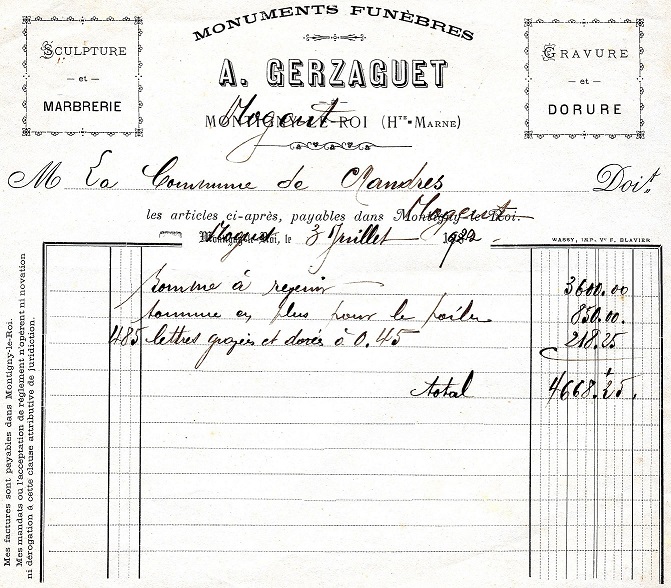 MONUMENTS FUNÈBRES
SCULPTURE
— et —
MARBRERIE
A. GERZAGUET
GRAVURE
— et —
DORURE
Nogent
MONTIGNY-LE-ROI (Hte-MARNE)
M La Commune de Mandres Doit
les articles ci-après, payables dans Montigny-le-Roi.
Nogent
Montigny-le-Roi, le 3 Juillet 1922
Nogent
WASSY, IMP. Ve F. BLAVIER
Somme à revenir 3600.00
somme en plus pour le poilu 850.00.
485 lettres gravées et dorées à 0.45 218.25
total 4668.25.
Mes factures sont payables dans Montigny-le-Roi.
Mes mandats ou l'acceptation de règlement n'opèrent ni novation
ni dérogation à cette clause attributive de juridiction.